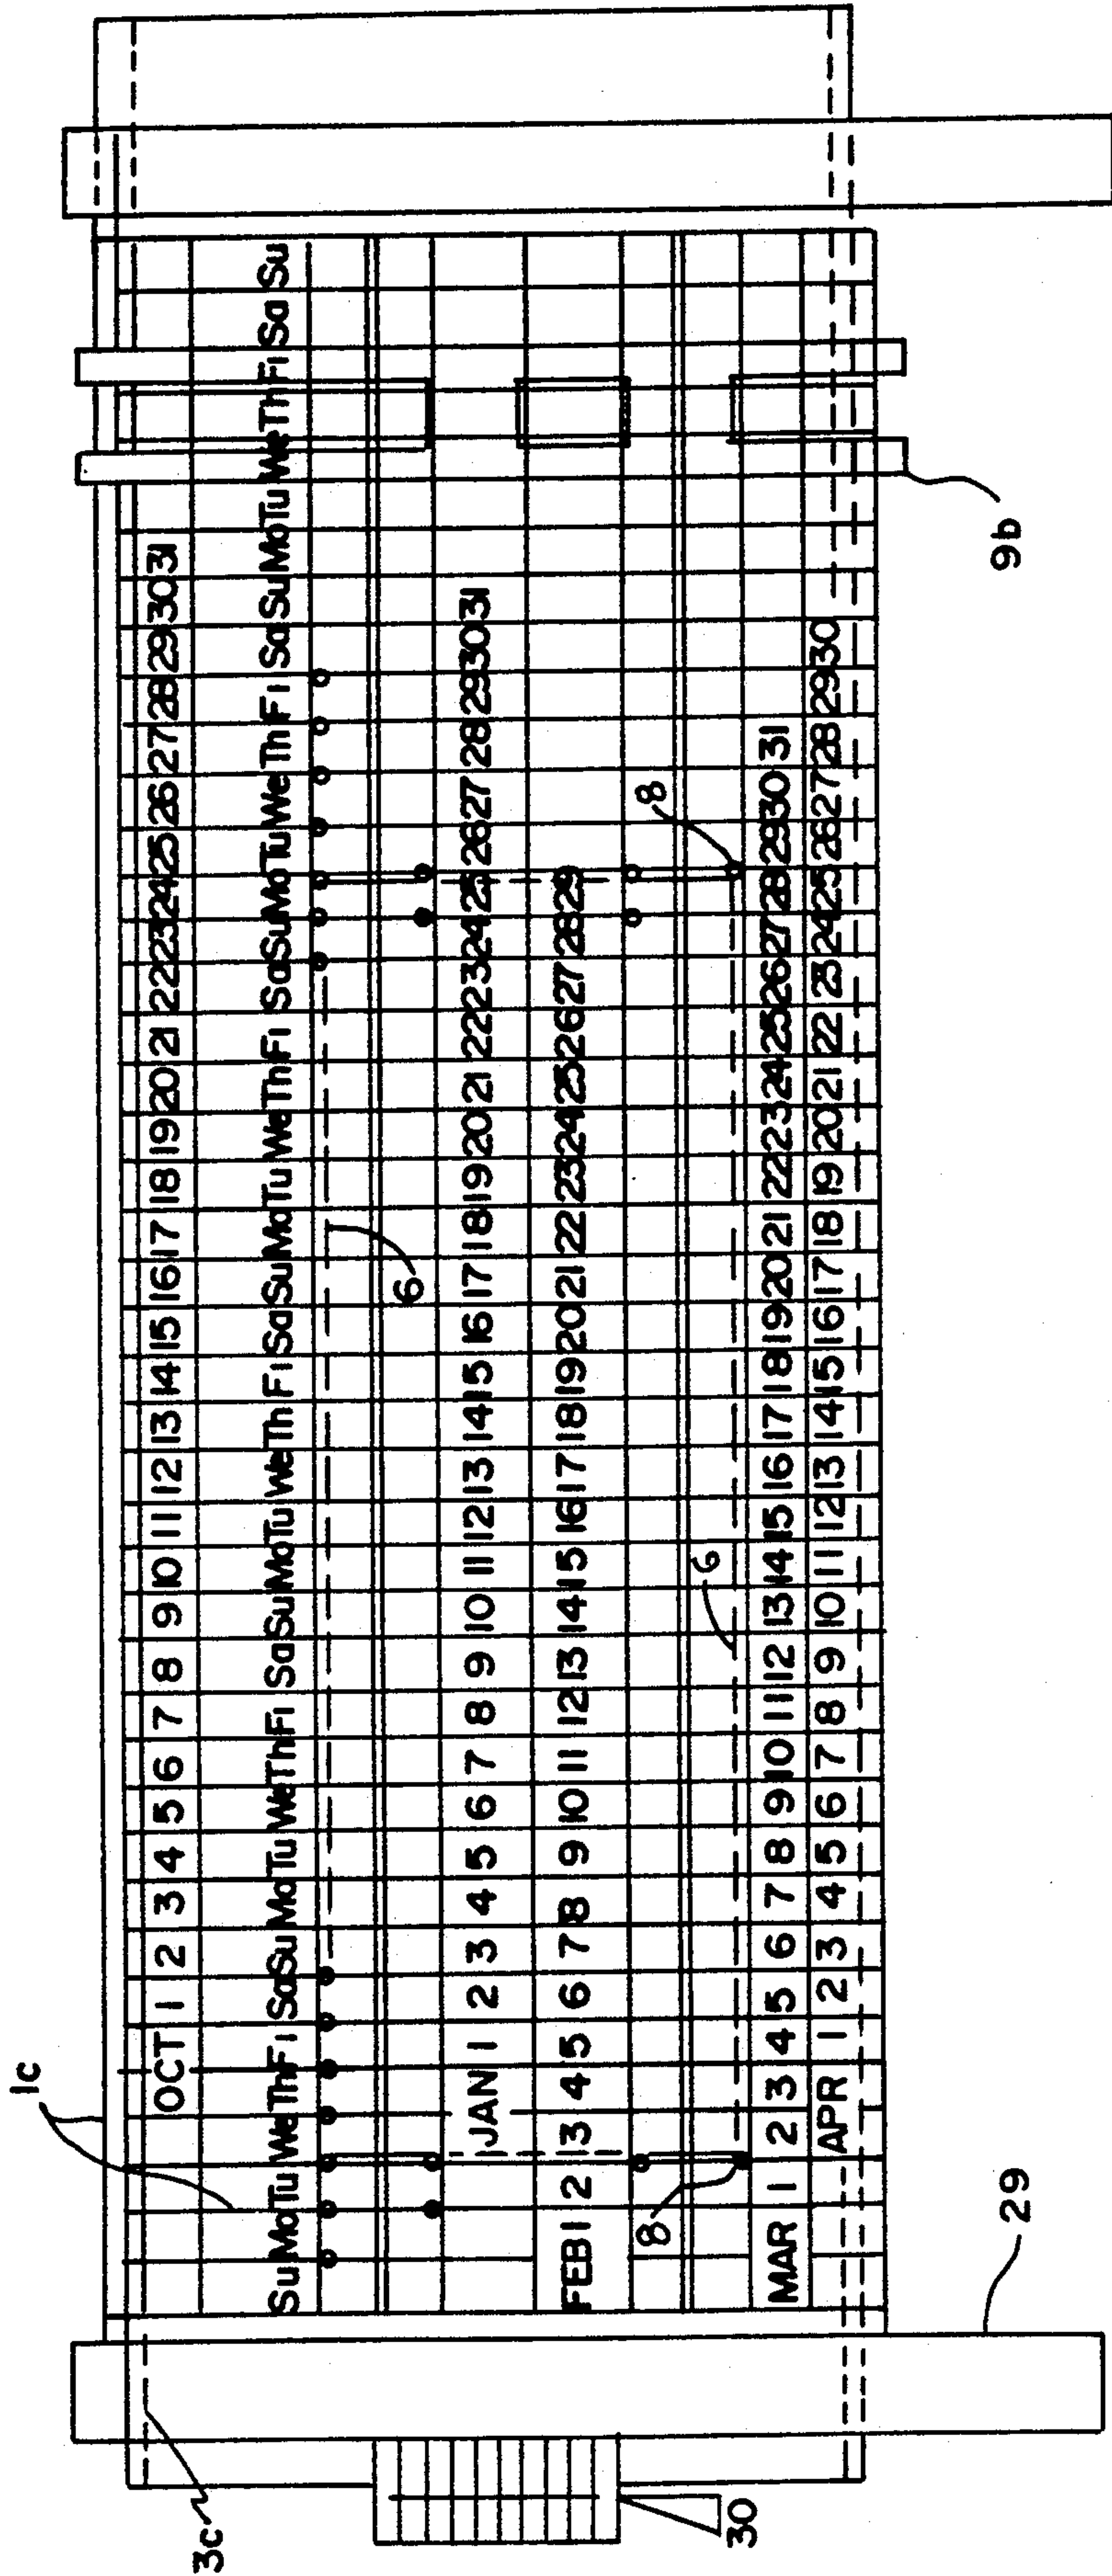 1c
OCT 1 2 3 4 5 6 7 8 9 10 11 12 13 14 15 16 17 18 19 20 21 22 23 24 25 26 27 28 29 30 31
3c
Su Mo Tu We Th Fi Sa Su Mo Tu We Th Fi Sa Su Mo Tu We Th Fi Sa Su Mo Tu We Th Fi Sa Su Mo Tu We Th Fi Sa Su Mo Tu We Th Fi Sa Su
6
JAN 1 2 3 4 5 6 7 8 9 10 11 12 13 14 15 16 17 18 19 20 21 22 23 24 25 26 27 28 29 30 31
FEB 1 2 3 4 5 6 7 8 9 10 11 12 13 14 15 16 17 18 19 20 21 22 23 24 25 26 27 28 29
8 8
6
30
MAR 1 2 3 4 5 6 7 8 9 10 11 12 13 14 15 16 17 18 19 20 21 22 23 24 25 26 27 28 29 30 31
APR 1 2 3 4 5 6 7 8 9 10 11 12 13 14 15 16 17 18 19 20 21 22 23 24 25 26 27 28 29 30
29 9b